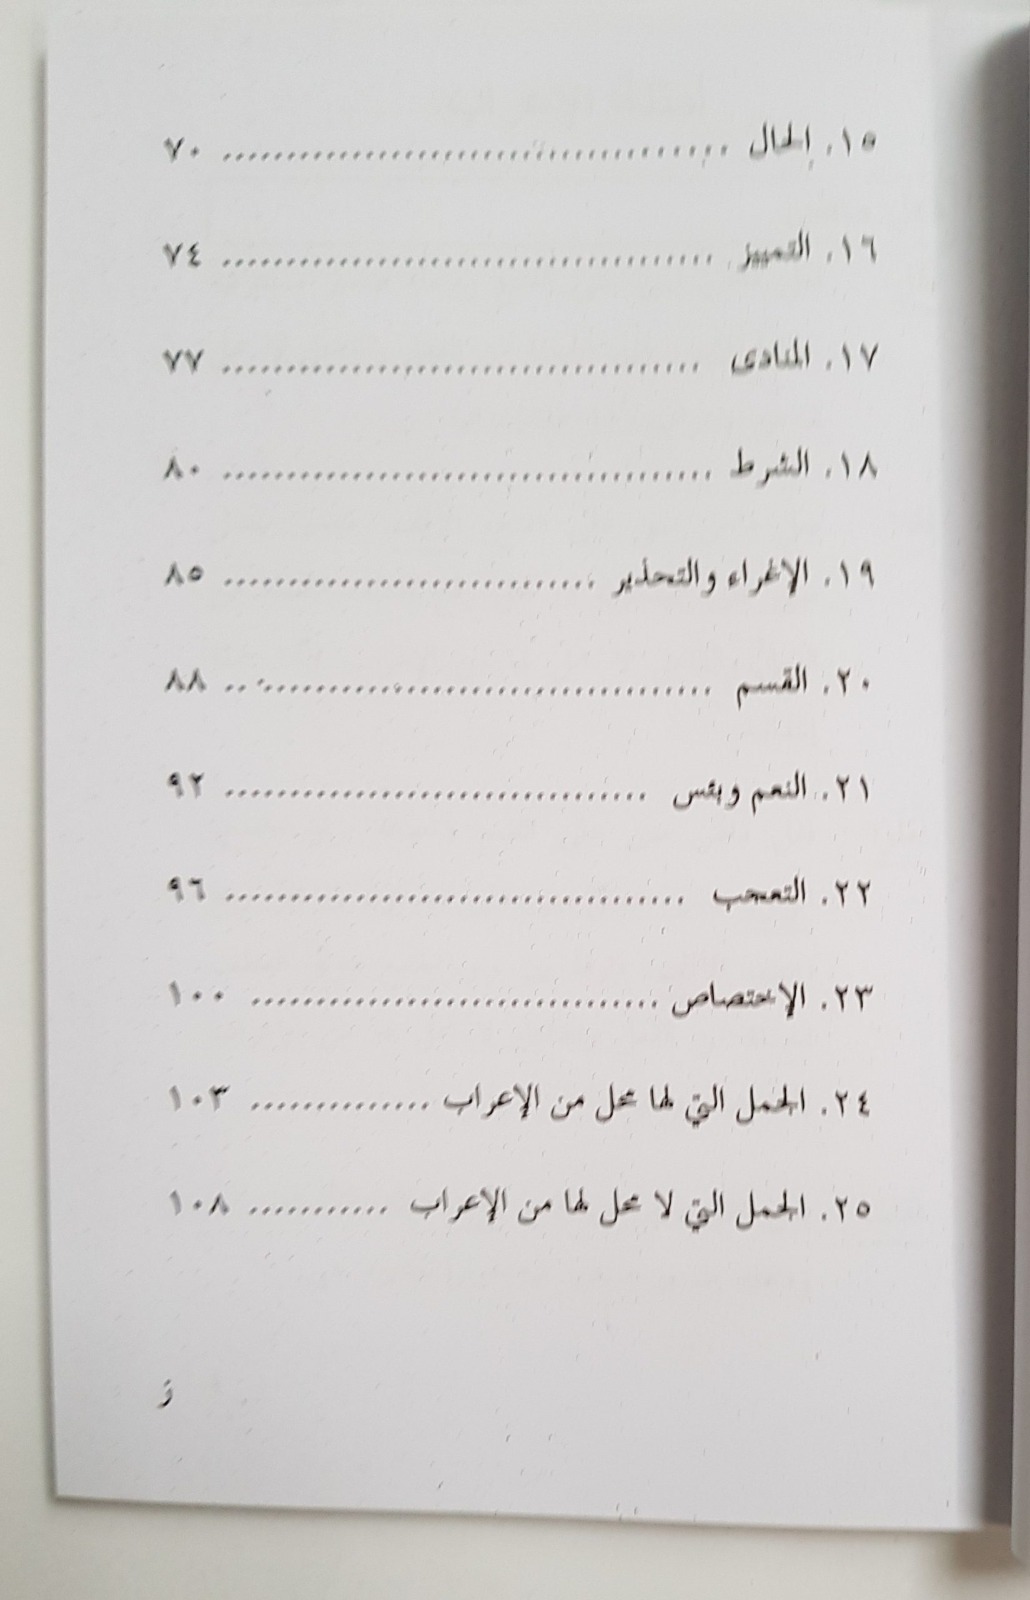 ١٥. الحال ........................................ ٧٠
١٦. التمييز ....................................... ٧٤
١٧. المنادى ...................................... ٧٧
١٨. الشرط ....................................... ٨٠
١٩. الإغراء والتحذير ............................. ٨٥
٢٠. القسم ..................................... ٨٨
٢١. النعم وبئس ................................. ٩٢
٢٢. التعجب .................................... ٩٦
٢٣. الإختصاص ................................ ١٠٠
٢٤. الجمل التي لها محل من الإعراب .............. ١٠٣
٢٥. الجمل التي لا محل لها من الإعراب ........... ١٠٨
ز